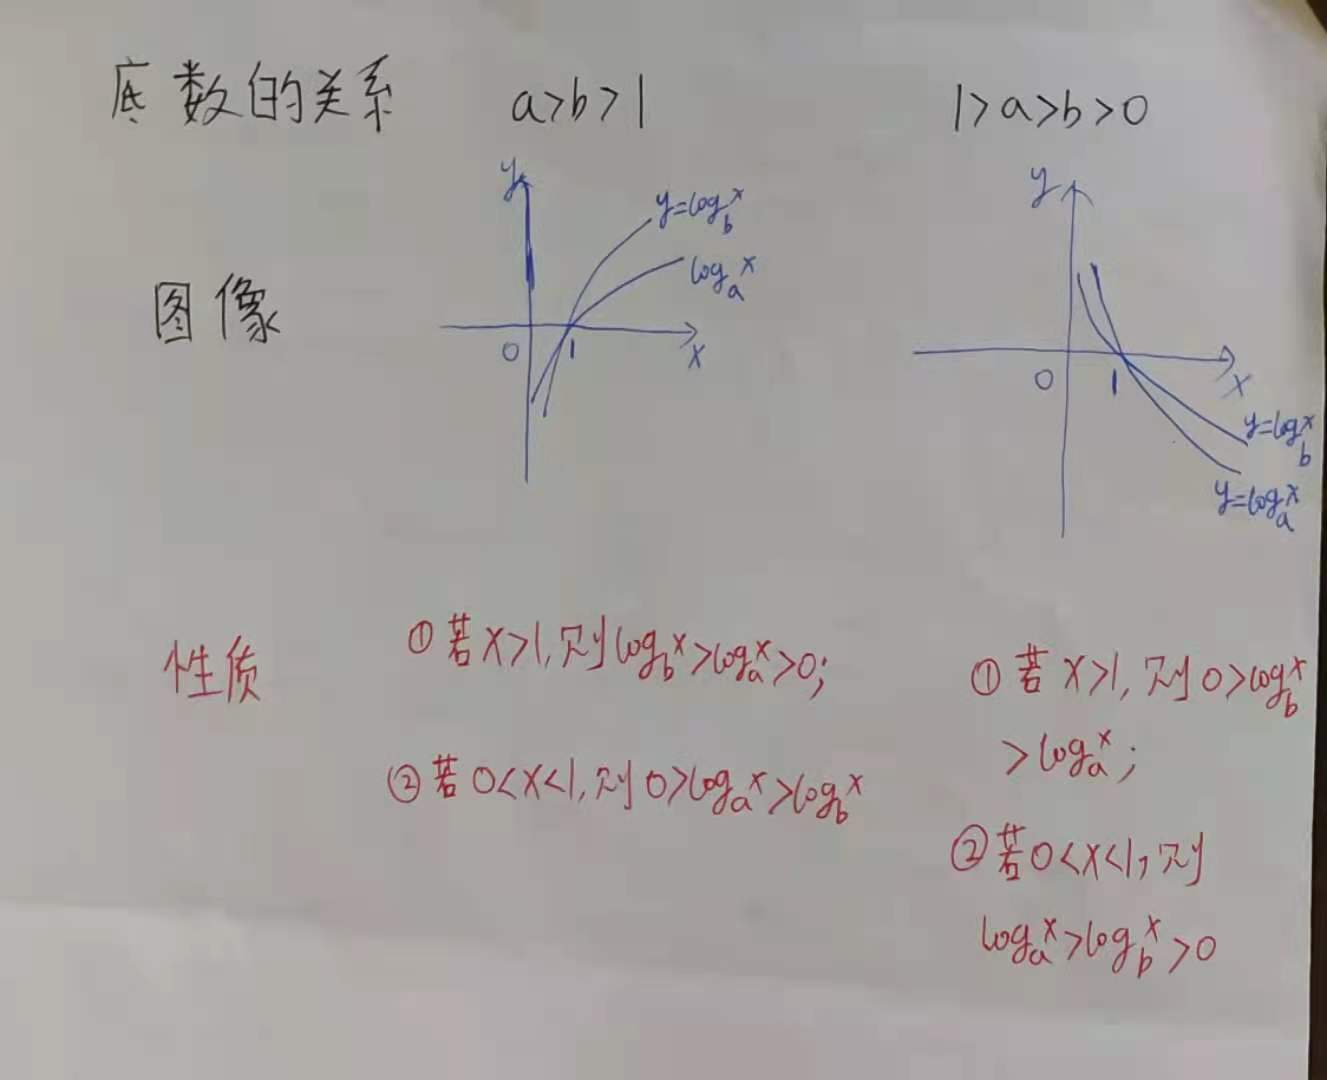 底数的关系 a>b>1 1>a>b>0
图像
y
y=log_b^x
log_a^x
0 1 x
y
0 1 x
y=log_b^x
y=log_a^x
性质
①若x>1,则log_b^x>log_a^x>0;
②若0<x<1,则0>log_a^x>log_b^x
①若x>1,则0>log_b^x
>log_a^x;
②若0<x<1,则
log_a^x>log_b^x>0